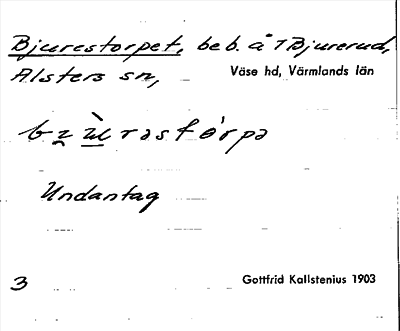 Bjurestorpet, beb. å 1 Bjurerud,
Alsters sn, Väse hd, Värmlands län
bzùrəstórpə
Undantag
3 Gottfrid Kallstenius 1903